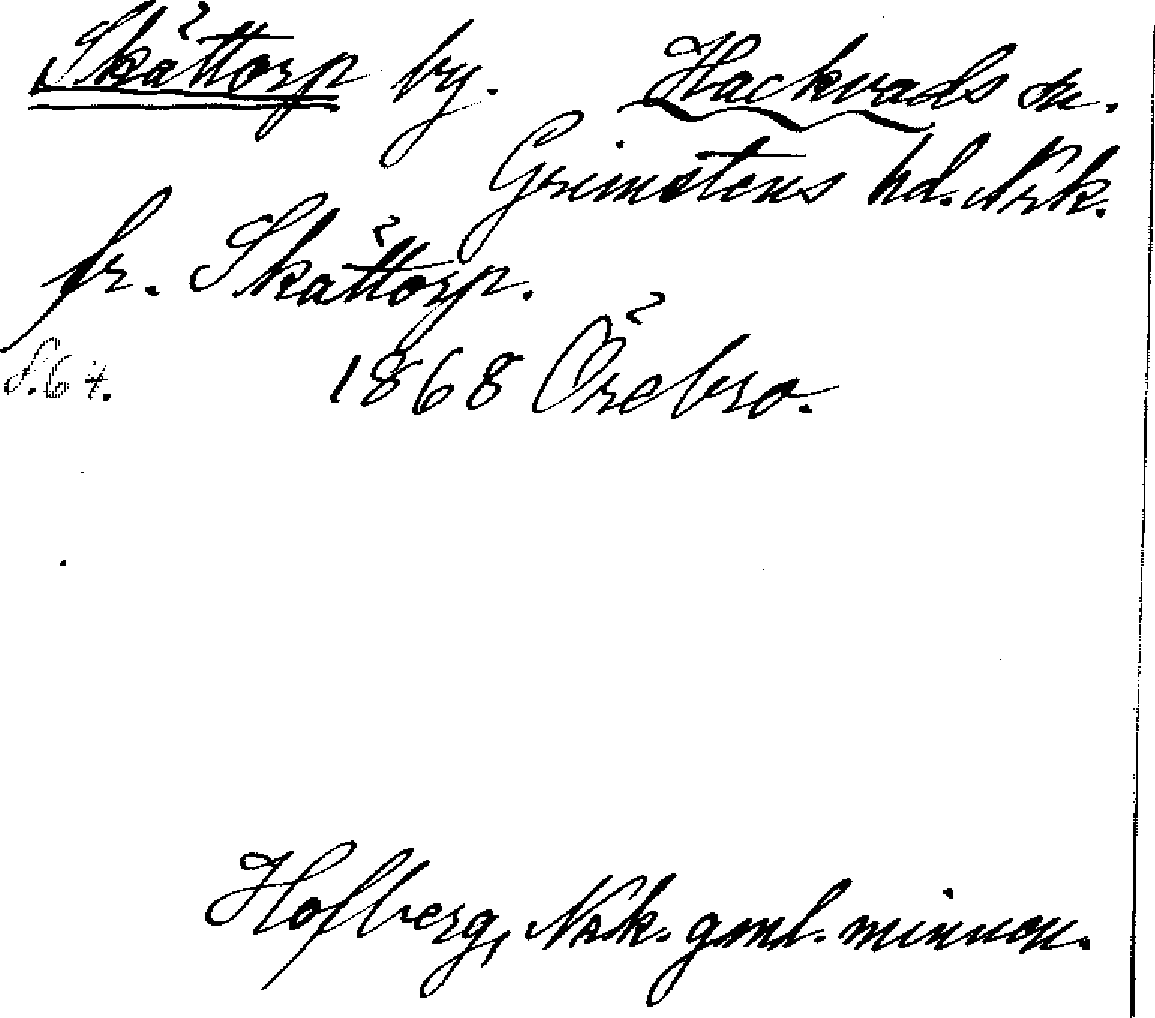 Skättorp by. Hackvads sn.
Grimstens hd. Nrk.
fr. Skättorp.
S. 64. 1868 Örebro.
Hofberg, Nrk. gml. minnen.